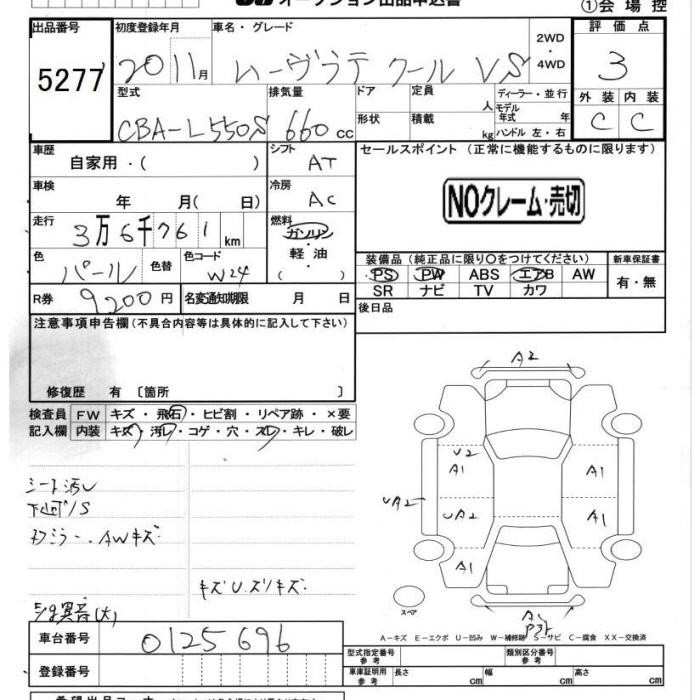 オークション出品申込書
①会場控
出品番号 初度登録年月 車名・グレード 2WD ・ 4WD 評価点
5277 2011月 ムーヴラテ クール VS 3
型式 排気量 ドア 定員 人 ディーラー・並行 外装 内装
CBA-L550S 660cc 形状 積載 kg モデル年式 年 ハンドル 左・右 C C
車歴 自家用・( ) シフト AT セールスポイント (正常に機能するものに限ります)
車検 年 月( 日) 冷房 AC NOクレーム・売切
走行 3万6千761km 燃料 ガソリン・軽油 ( )
色 パール 色替 色コード W24 装備品 (純正品に限り○をつけてください) 新車保証書
PS PW ABS エアB AW 有・無
SR ナビ TV カワ
R券 9200円 名変通知期限 月 日 後日品
注意事項申告欄(不具合内容等は具体的に記入して下さい)
修復歴 有 〔箇所 〕
検査員 FW キズ・飛石・ヒビ割・リペア跡・×要
記入欄 内装 キズ・汚レ・コゲ・穴・スレ・キレ・破レ
シート汚レ
下廻りS
AWキズ
キズU.ズリキズ
異音(大)
A2
U2
A1 A1
UA2 UA2 A1
A1 A1
スペア
A-キズ E-エクボ U-凹み W-補修跡 S-サビ C-腐食 XX-交換済
車台番号 0125696
登録番号
型式指定番号 参考 類別区分番号 参考
車庫証明用 参考 長さ cm 幅 cm 高さ cm